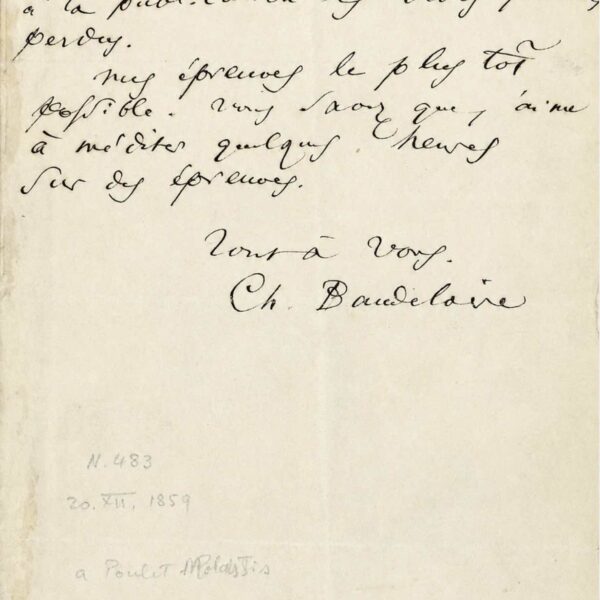 à la publication des vers
perdus.
mes épreuves le plus tôt
possible. Vous savez que j'aime
à méditer quelques heures
sur des épreuves.
Tout à vous.
Ch. Baudelaire
N. 483
20. XII. 1859
a Poulet Malassis